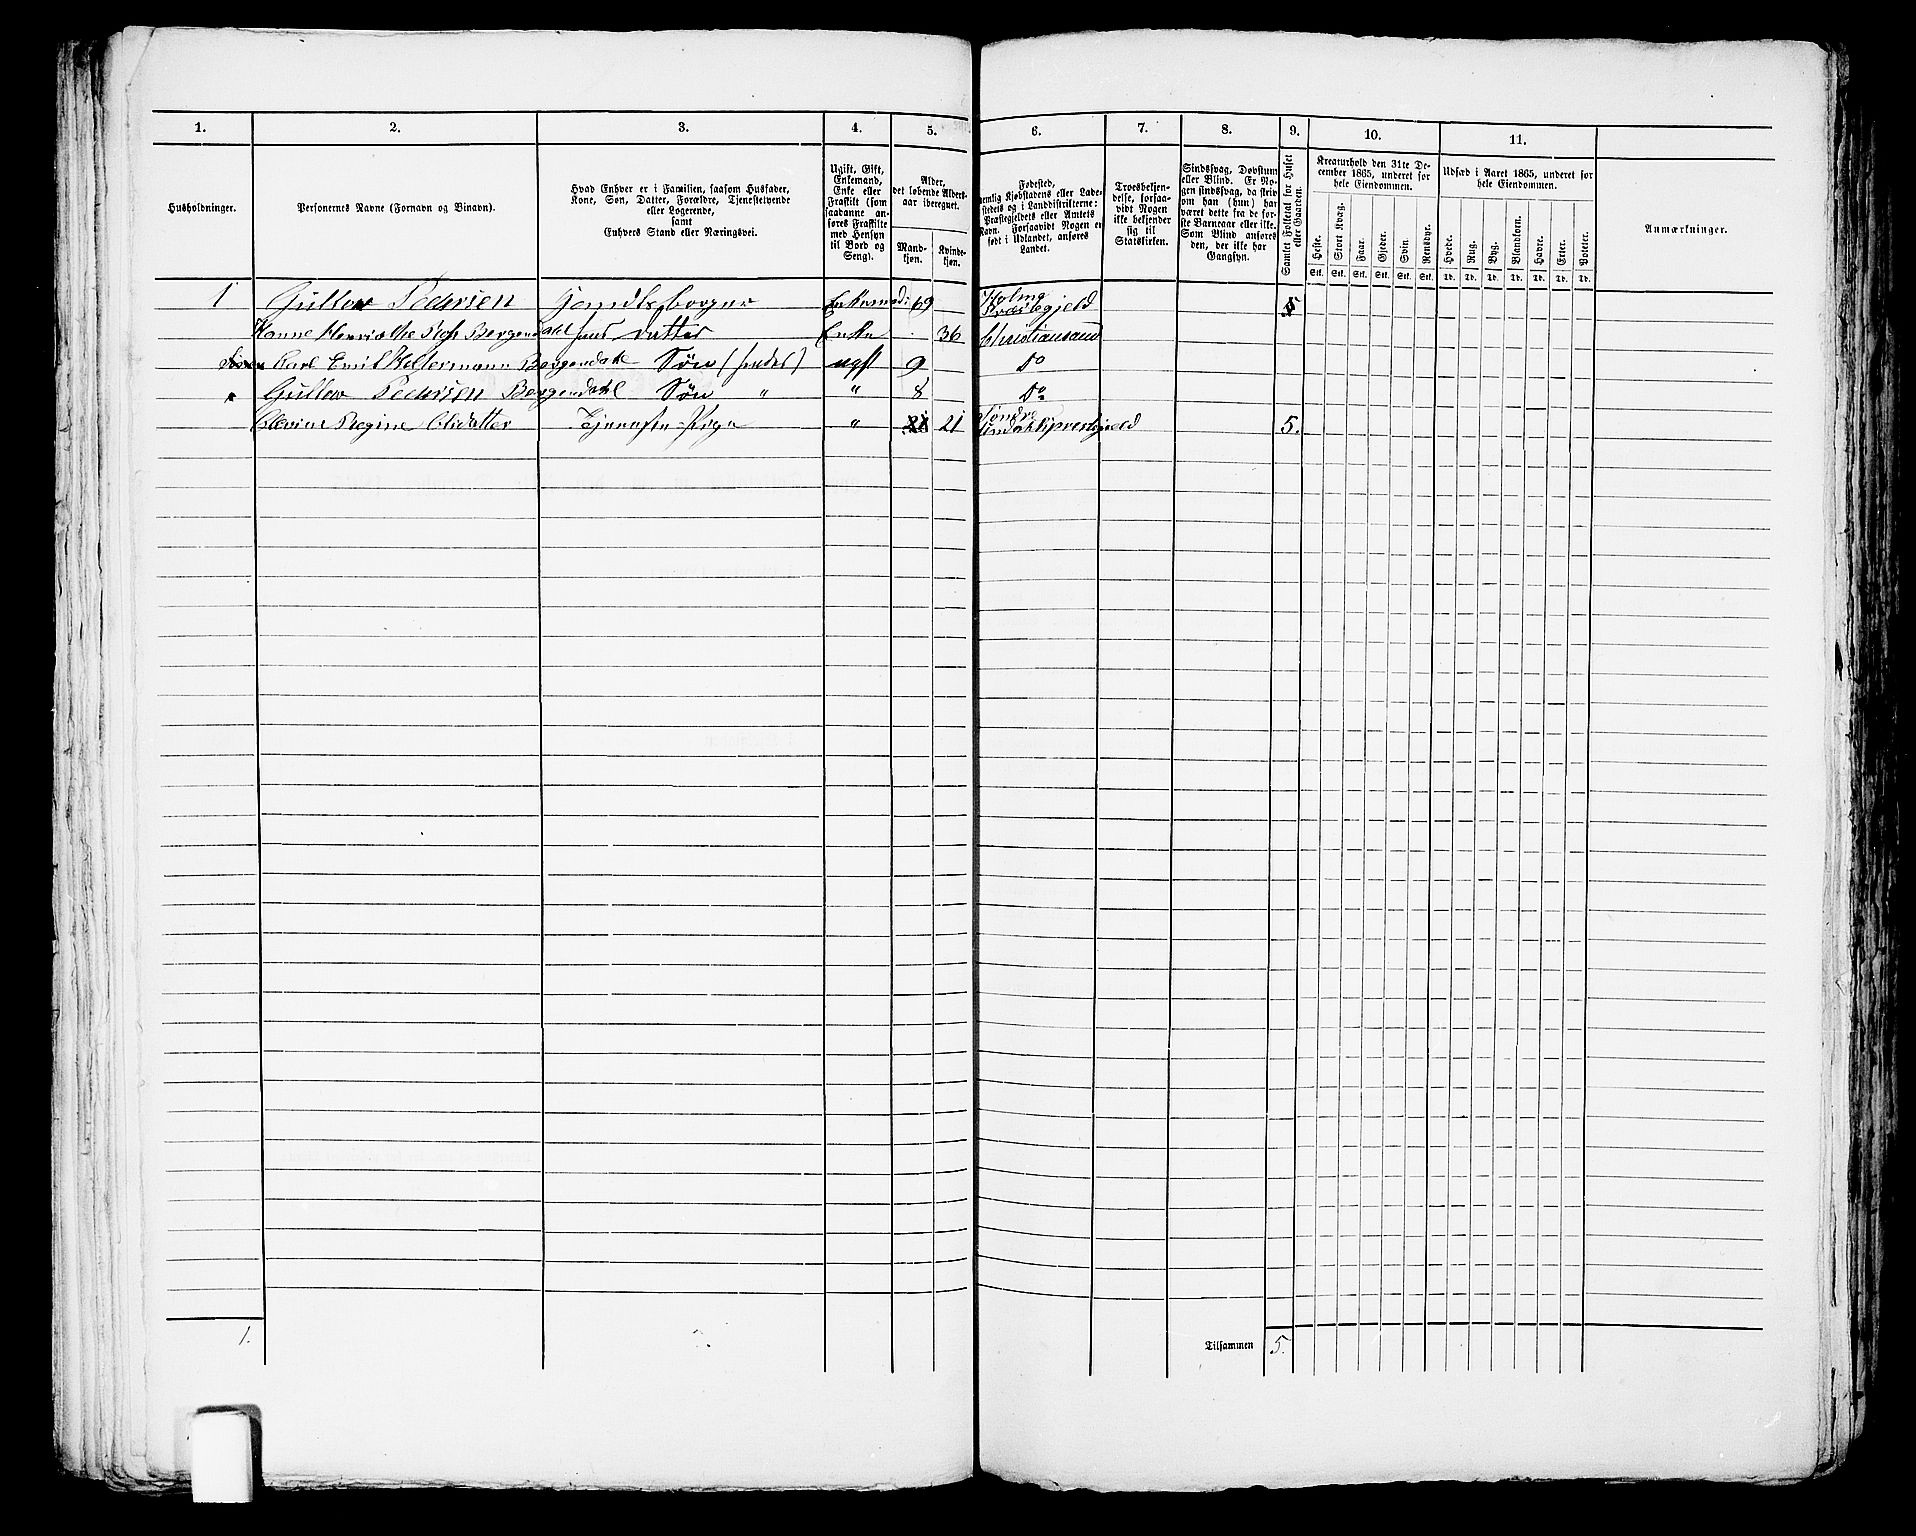 1.
2.
3.
4.
5.
6.
7.
8.
9.
10.
11.
Husholdninger.
Personernes Navne (Fornavn og Binavn).
Hvad Enhver er i Familien, saasom Husfader,
Kone, Søn, Datter, Forældre, Tjenestetyende
eller Logerende,
samt
Enhvers Stand eller Næringsvei.
Ugift, Gift,
Enkemand,
Enke eller
Fraskilt (som
saadanne an-
føres Fraskilte
med Hensyn
til Bord og
Seng).
Alder,
det løbende Alders-
aar iberegnet.
Mand-
kjøn.
Kvinde-
kjøn.
Fødested,
nemlig Kjøbstadens eller Lade-
stedets og i Landdistrikterne:
Præstegjeldets eller Amtets
Navn. Forsaavidt Nogen er
født i Udlandet, anføres
Landet.
Troesbekjen-
delse, forsaa-
vidt Nogen
ikke bekjender
sig til
Statskirken.
Sindssvag, Døvstum
eller Blind. Er No-
gen sindssvag, da skriv
om han (hun) har
været dette fra de før-
ste Barneaar eller ikke.
Som Blind anføres
den, der ikke har
Gangsyn.
Samlet Folketal for Huset
eller Gaarden.
Kreaturhold den 31te De-
cember 1865, underet for
hele Eiendommen.
Heste.
Stort Kvæg.
Faar.
Gjeder.
Svin.
Rensdyr.
Stk. Stk. Stk. Stk. Stk. Stk.
Udsæd i Aaret 1865, underet for
hele Eiendommen.
Hvede.
Rug.
Byg.
Blandkorn.
Havre.
Erter.
Poteter.
Td. Td. Td. Td. Td. Td. Td.
Anmærkninger.
1 Gullow Pedersen Handelsborger Enkemand 69 Holme Præstegjeld 5
Hanne Bergendahl hans Datter Enke 36 Christiansand
Carl Emil Bergendahl Søn (hendes) ugft 9 Do
Gullow Pedersen Bergendahl Søn " " 8 Do
Regine Olsdatter Tjeneste-Pige " 21 21 Søndre Præstegjeld 5.
1.
Tilsammen 5.